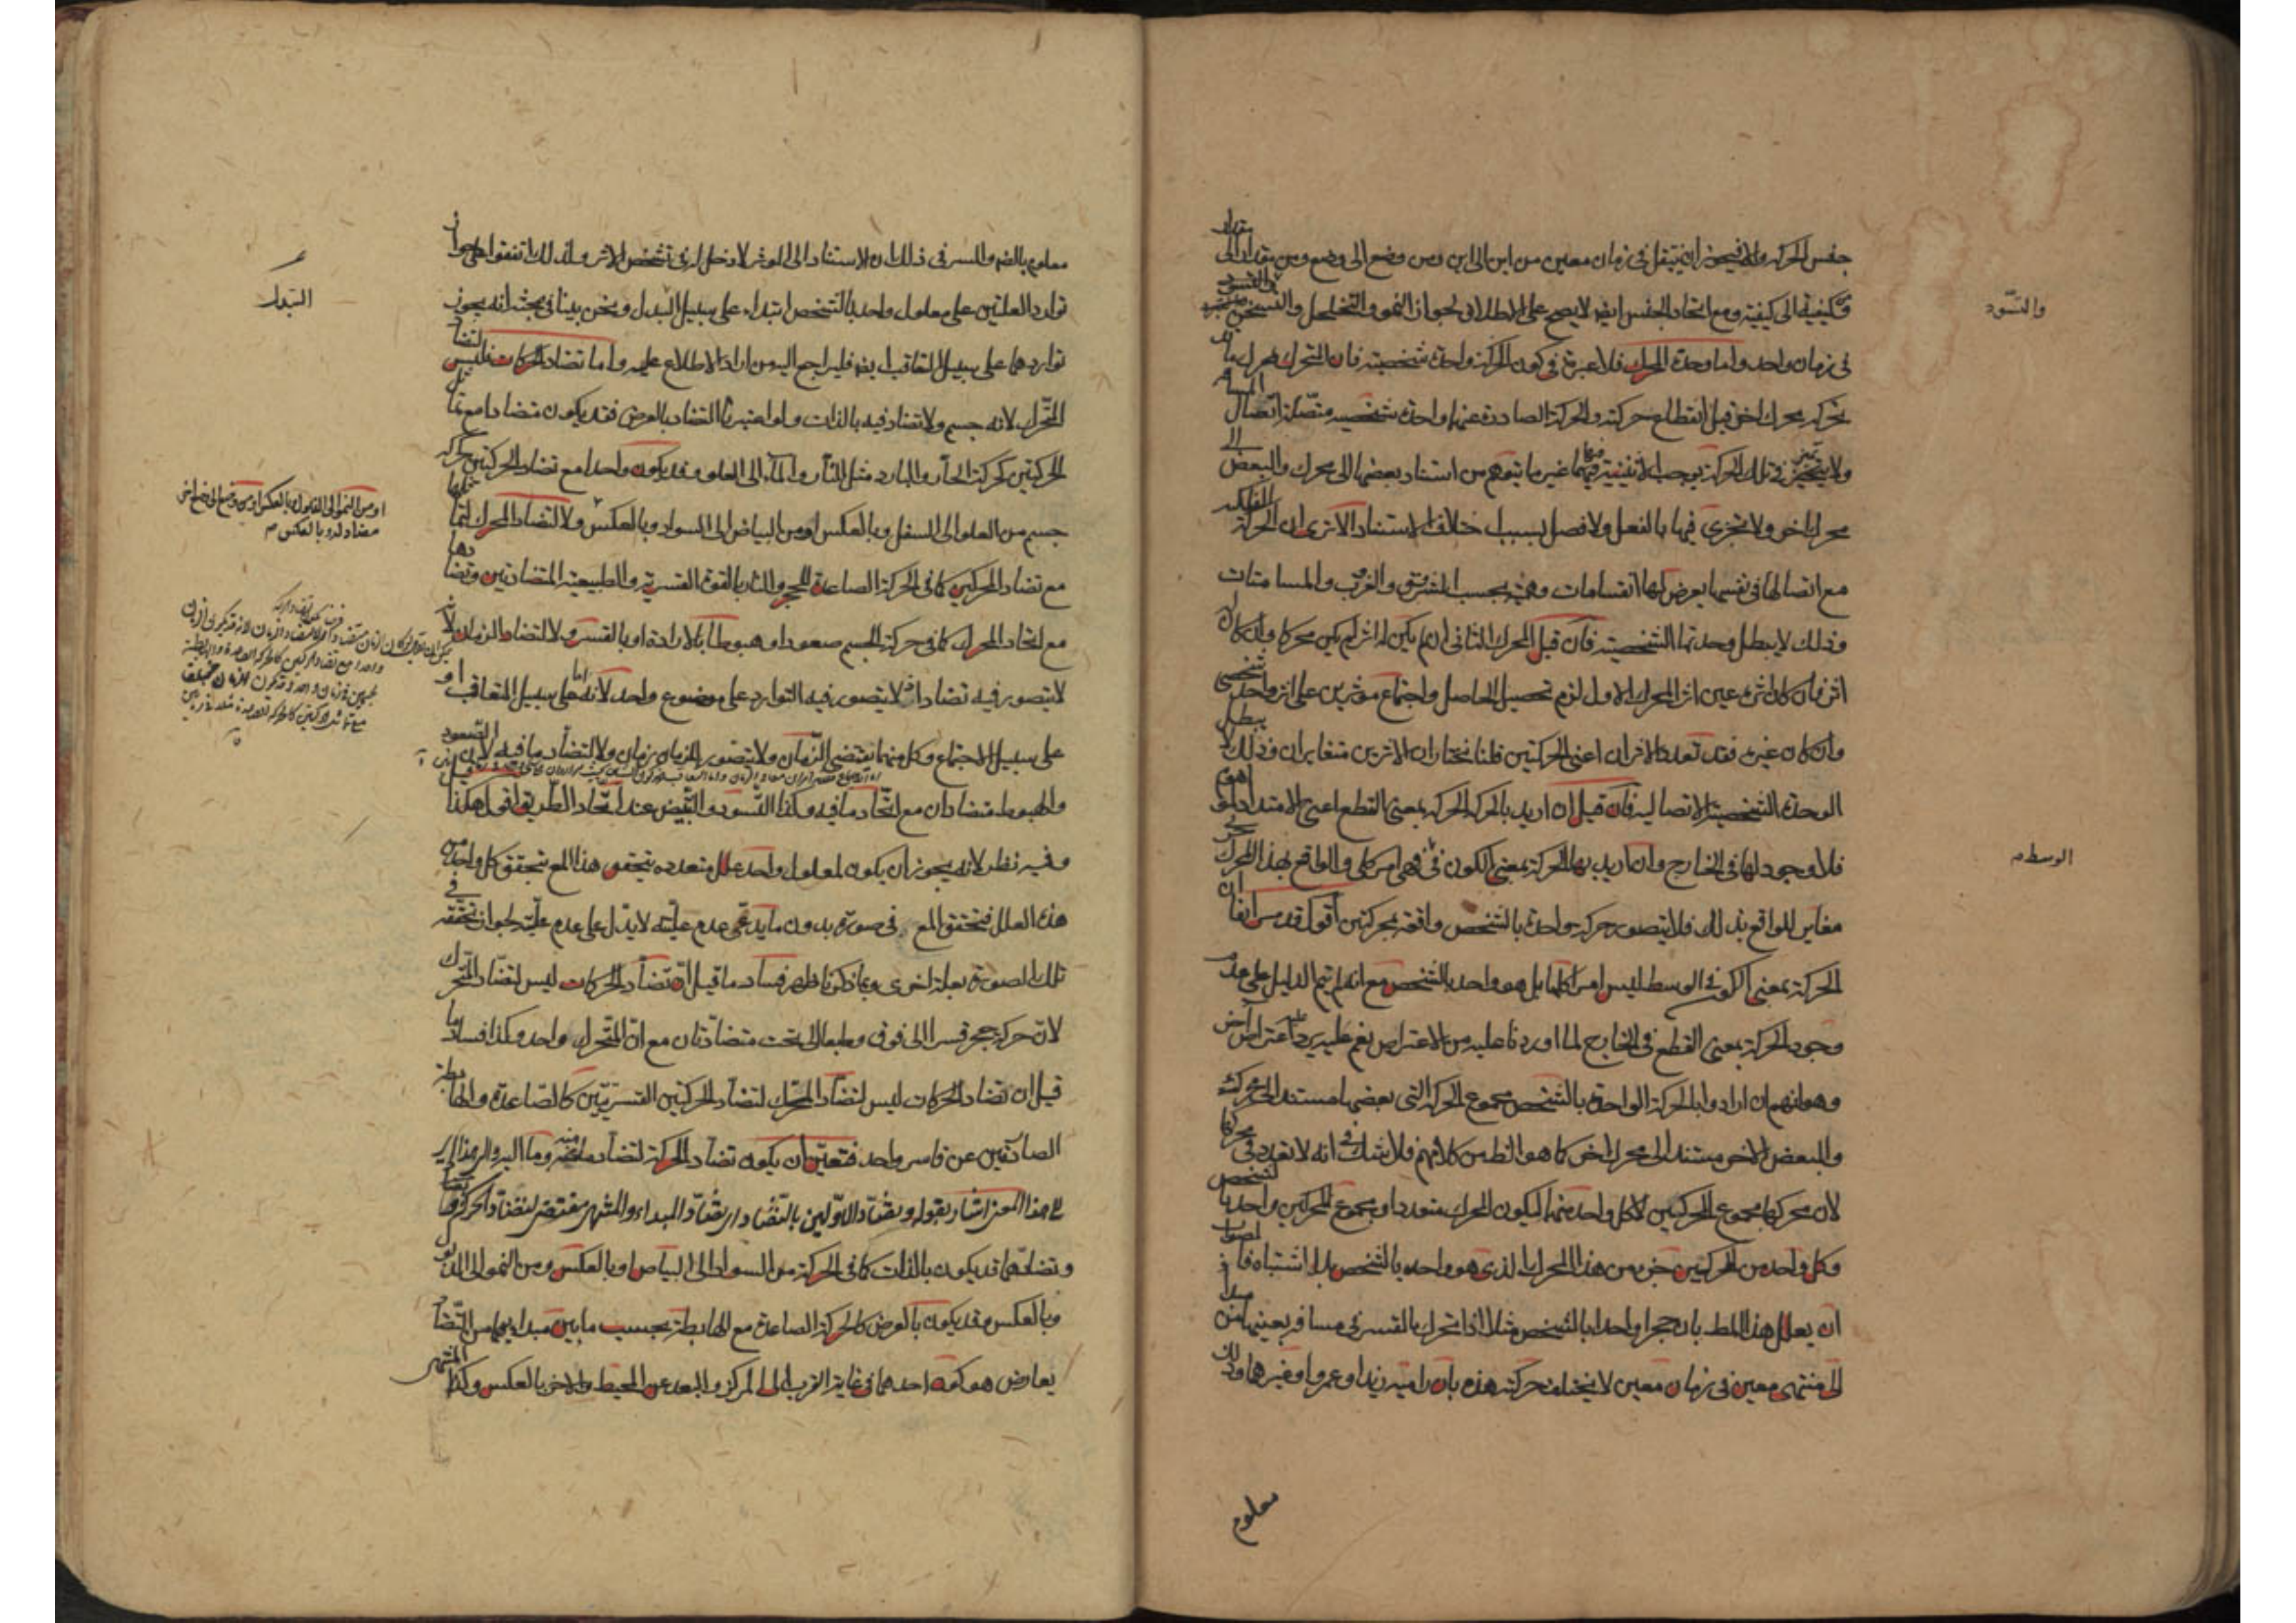 جنس الحركة والا فيجوز ان ينتقل في زمان معين من اين الى اين ومن وضع الى وضع ومن مقدار الى مقدار
وكيفية الى كيفية ومع اتحاد الجنس ايضا لا يصح على الاطلاق لجواز النمو والتخلخل والتسخن
والتسود
في زمان واحد واما وحدة المحرك فلا عبرة في كون الحركة واحدة شخصية فان المتحرك بمحرك ما قد
يحركه محرك اخر قبل انقطاع حركته والحركة الصادرة عنهما واحدة شخصية متصلة اتصال المسافة
ولا يتميز في تلك الحركة يوجب الاثنينية فيها غير ما يتوهم من استناد بعضها الى محرك والبعض الى
محرك اخر ولا تجزى فيها بالفعل ولا فصل بسبب اختلاف الاستناد الا ترى ان الحركة الفلكية
مع اتصالها في نفسها يعرض لها انقسامات وهمية بحسب الشروق والغروب والمسامتات
وذلك لا يبطل وحدتها الشخصية فان قيل المحرك الثاني ان لم يكن له اثر لم يكن محركا وان كان له
اثر فان كان اثره عين اثر المحرك الاول لزم تحصيل الحاصل واجتماع مؤثرين على اثر واحد شخصي
وان كان غيره فقد تعدد الاثران اعني الحركتين قلنا نختار ان الاثرين متغايران وذلك لا يبطل
الوحدة الشخصية الاتصالية فان قيل ان اريد بالحركة الحركة بمعنى القطع اعني الامتداد
فلا وجود لها في الخارج وان اريد بها الحركة بمعنى الكون في فهي امر كلي والواقع بهذا المحرك
الوسط م
مغاير للواقع بذلك فلا يتصور حركة واحدة بالشخص واقعة بمحركين اقول قد مر انفا ان
الحركة بمعنى الكون في الوسط ليس امرا كليا بل هو واحد بالشخص مع انه لم يتم الدليل على عدم
وجود الحركة بمعنى القطع في الخارج لما اوردنا عليه من الاعتراض نعم يرد عليه اعتراض اخر
وهو انهم ان ارادوا بالحركة الواحدة بالشخص مجموع الحركة التي بعضها مستند الى محرك
والبعض الاخر مستند الى محرك اخر كما هو الظاهر من كلامهم فلا شك في انه لا تعدد في محركها
لان محركها مجموع المحركين لا كل واحد منهما ليكون المحرك متعددا ومجموع المحركين واحد بالشخص
وكل واحد من المحركين جزء من هذا المحرك الذي هو واحد بالشخص بلا اشتباه
ان يعلل هذا المطلب بان حجرا واحدا بالشخص مثلا اذا تحرك بالقسر في مسافة بعينها من مبدأ
الى منتهى معين في زمان معين لا يختلف حركته هذه بان راميه زيد او عمرو او غيرهما وذلك
معلوم
معلوم بالضرورة والسر في ذلك ان الاستناد الى المؤثر لا دخل له في تشخص الاثر ولذلك اتفقوا على جواز
توارد العلتين على معلول واحد بالشخص ابتداء على سبيل البدل ونحن بينا في بحثه انه يجوز
تواردهما على سبيل التعاقب ايضا فليراجع اليه من اراد الاطلاع عليه واما تضاد الحركات فليس لتضاد
المتحرك لانه جسم ولا تضاد فيه بالذات ولو اعتبرنا التضاد بالعرض فقد يكون متضادا مع تماثل
الحركتين كحركة الحار والبارد مثل النار والماء الى العلو وقد يكون واحدا مع تضاد الحركتين كحركة
جسم من العلو الى السفل وبالعكس او من البياض الى السواد وبالعكس ولا لتضاد المحرك لتماثلها
او من النمو الى الذبول وبالعكس او من وضع الى وضع اخر
مضاد له وبالعكس م
مع تضاد المحركين كما في الحركة الصاعدة للحجر والنار بالقوة القسرية والطبيعية المتضادتين وتضادها
مع اتحاد المحرك كما في حركة الجسم صعودا وهبوطا بالارادة او بالقسر ولا لتضاد الزمان لانه
لا يتصور فيه تضاد اذ لا يتصور فيه التوارد على موضوع واحد لانه اما على سبيل التعاقب او
على سبيل الاجتماع وكل منهما يقتضي الزمان ولا يتصور للزمان زمان ولا لتضاد ما فيه لان الصعود
والهبوط متضادان مع اتحاد ما فيه وكذا التسود والتبيض عند اتحاد الطريق اقول هكذا قيل
وفيه نظر لانه يجوز ان يكون لمعلول واحد علل متعددة يتحقق هذا المع بتحقق كل واحد من
هذه العلل فتحقق المع في صورة بدون ما يدعى عدم عليته لا يدل على عدم عليته لجواز تحققه في
تلك الصورة بعلة اخرى وبما ذكرنا ظهر فساد ما قيل ان تضاد الحركات ليس لتضاد المتحرك
لان حركة حجر قسرا الى فوق وطبعا الى تحت متضادتان مع ان المتحرك واحد وكذا فساد ما
قيل ان تضاد الحركات ليس لتضاد المحرك لتضاد الحركتين القسريتين كالصاعدة والهابطة
الصادرتين عن قاسر واحد فتعين ان يكون تضاد الحركة لتضاد ما منه وما اليه
هذا المعنى اشار بقوله وتضاد الاولين بالتضاد اي تضاد المبداء والمنتهى مقتضى لتضاد الحركة
وتضادهما قد يكون بالذات كما في الحركة من السواد الى البياض وبالعكس ومن النمو الى الذبول
وبالعكس وقد يكون بالعرض كالحركة الصاعدة مع الهابطة بحسب ما بين مبدايهما من التضاد
يعارض هو كون احدهما في غاية القرب الى المركز والبعد عن المحيط والاخر بالعكس وكذا المنتهى